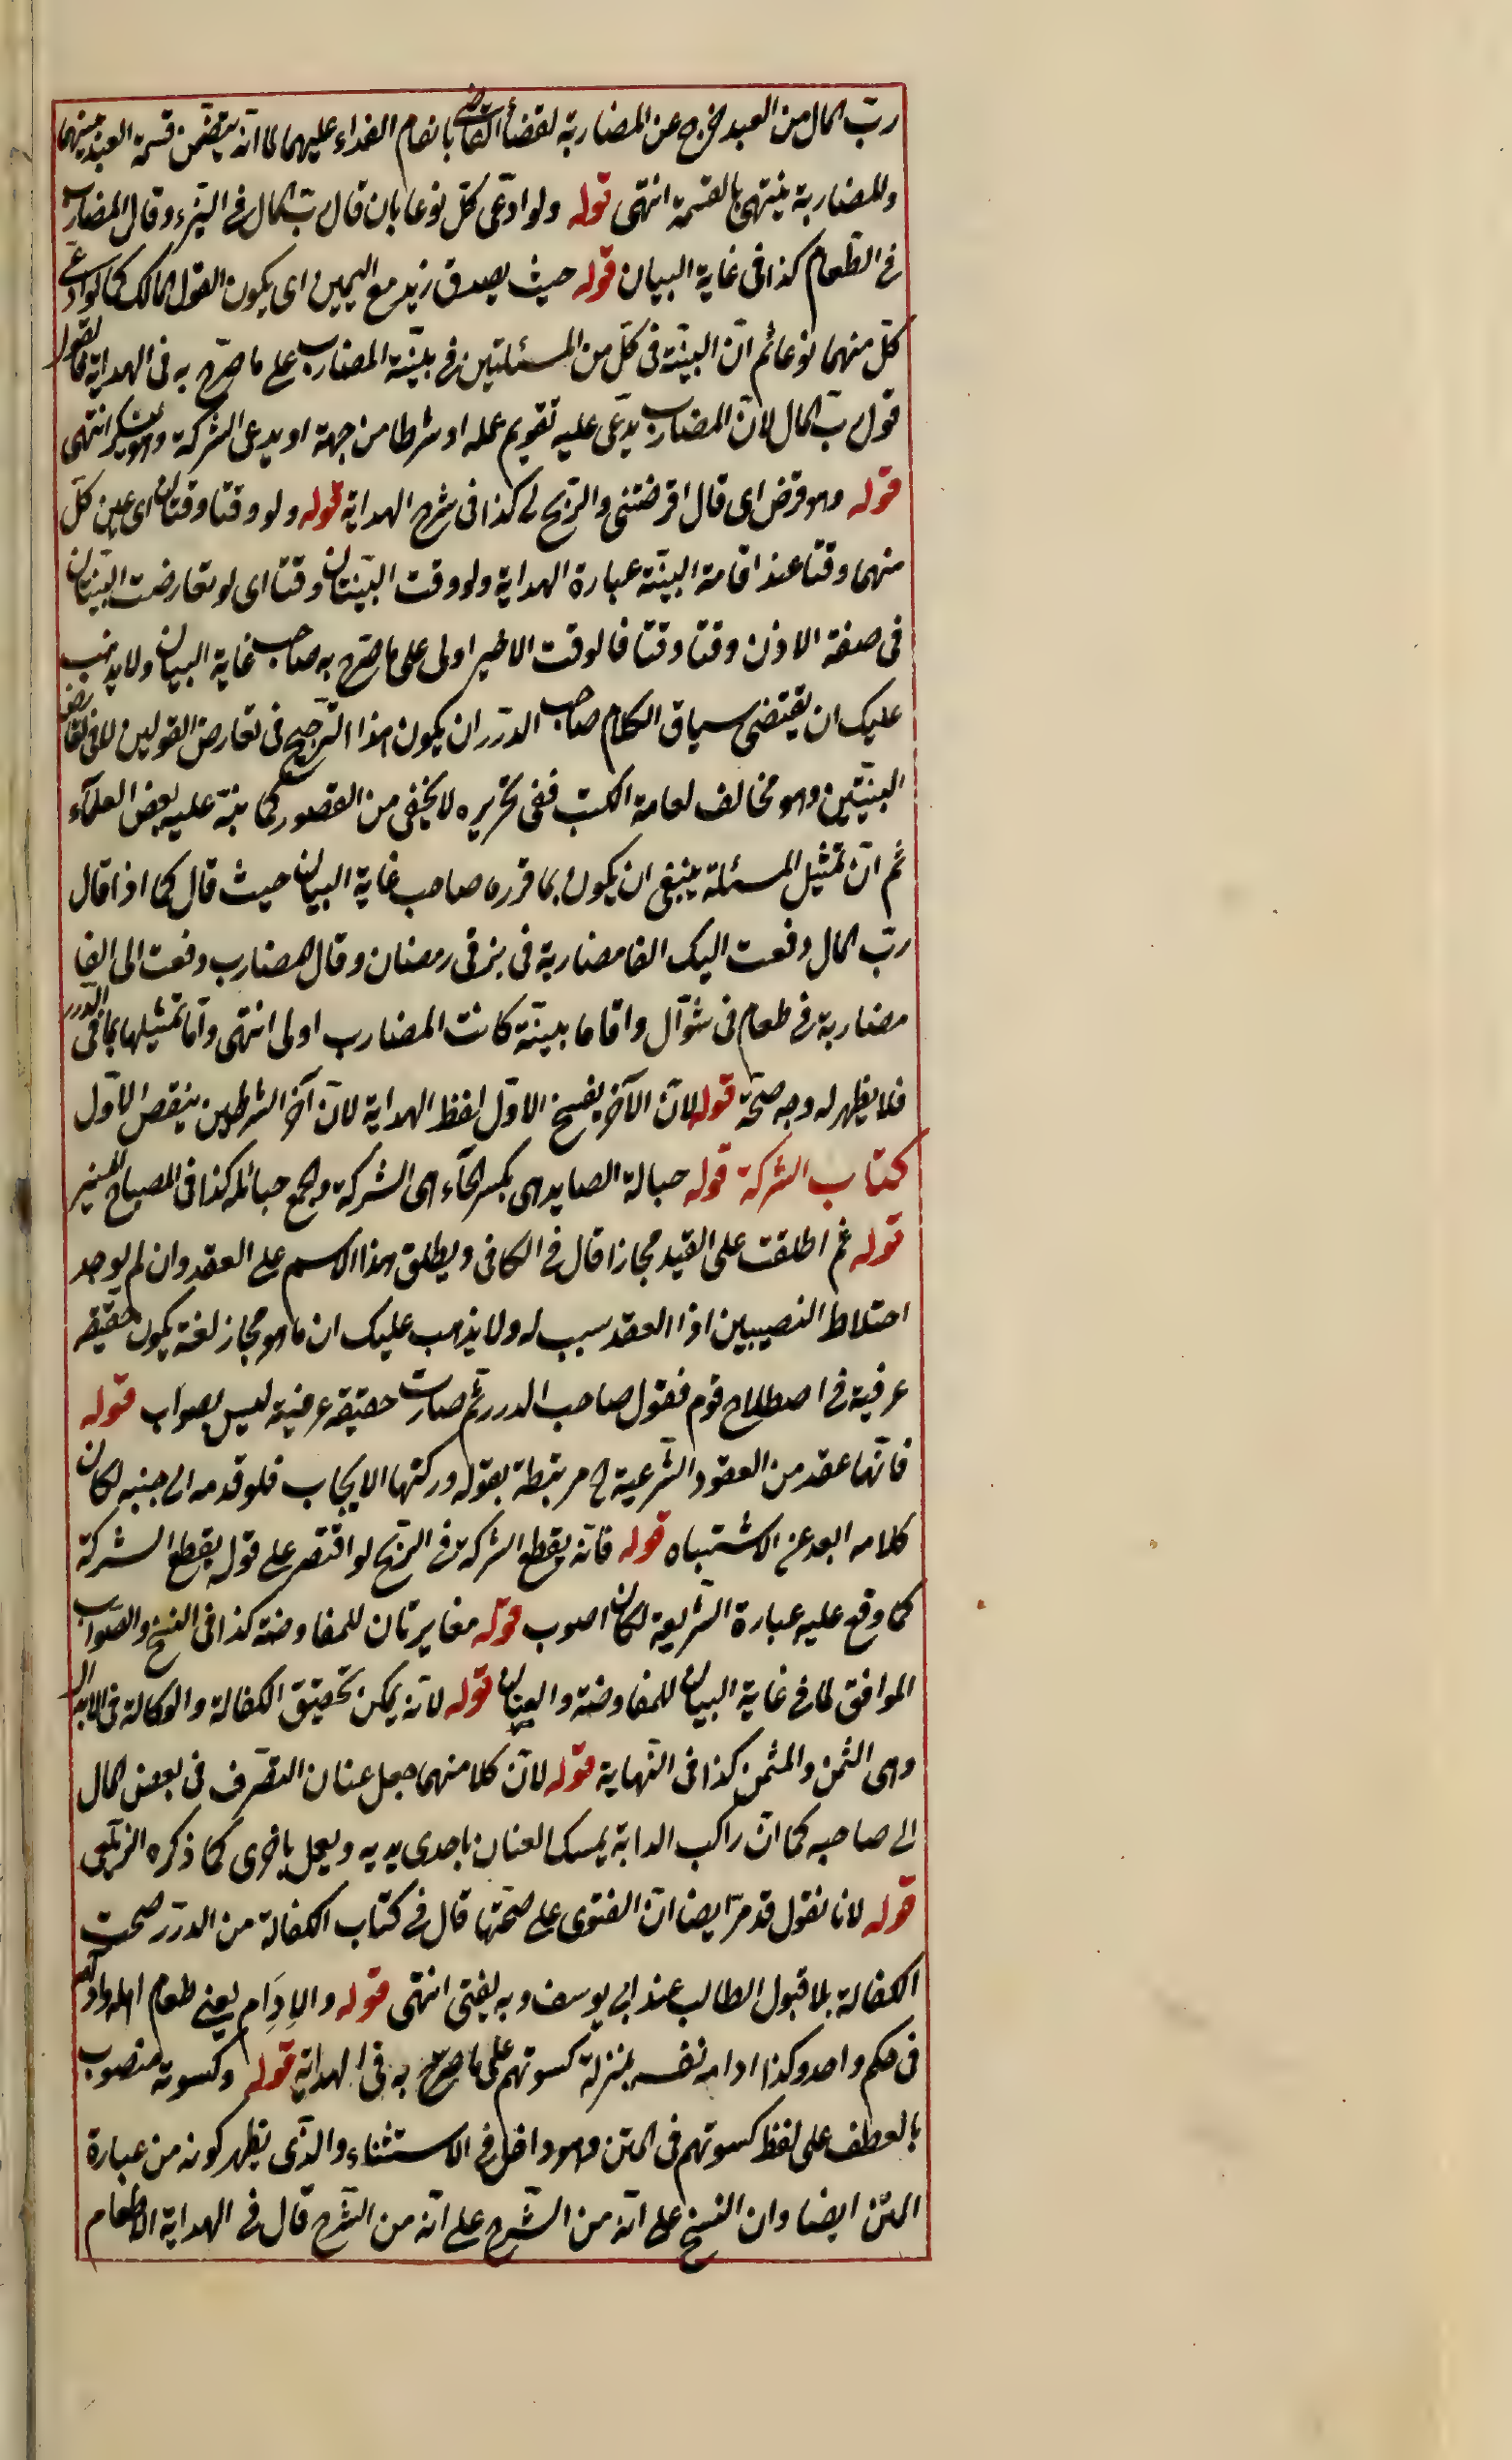 ربّ المال من العبد يخرج عن المضاربة لقضاء القاضى بانقسام الفداء عليهما لما انّه يتضمّن قسمة العبد بينهما
والمضاربة ينتهى بالقسمة انتهى قوله ولو ادّعى كلّ نوعا بان قال ربّ المال فى البزّ وقال المضارب
فى الطّعام كذا فى غاية البيان قوله حيث يصدق زيد مع اليمين اى يكون القول للمالك كما لو ادّعى
كلّ منهما نوعا ثم انّ البيّنة فى كلّ من المسئلتين فى بيّنة المضارب على ما صرّح به فى الهداية فالقول
قول ربّ المال لانّ المضارب يدّعى عليه تقويم عمله او شرطا من جهة او يدعى الشركة وهو ينكر انتهى
قوله وهو قرض اى قال اقرضتنى والرّبح لى كذا فى شرح الهداية قوله ولو وقتا وقتا اى عين كلّ
منهما وقتا عند اقامة البيّنة عبارة الهداية ولو وقت البيّنتان وقتا اى لو تعارضت البيّنتان
فى صفة الاذن وقتا وقتا فالوقت الاخير اولى على ما صرّح به صاحب غاية البيان ولا يذهب
عليك ان يقتضى سياق الكلام صاحب الدرر ان يكون هذا الترجيح فى تعارض القولين لا فى تعارض
البيّنتين وهو مخالف لعامة الكتب ففى تحريره لا يخفى من القصور كما نبّه عليه بعض العلمآء
ثم انّ تمثيل المسئلة ينبغى ان يكون بما قرره صاحب غاية البيان حيث قال كما اذا قال
ربّ المال دفعت اليك الفا مضاربة فى بزّ فى رمضان وقال المضارب دفعت الى الفا
مضاربة فى طعام فى شوّال واقاما بيّنة كانت المضارب اولى انتهى وامّا تمثيلها بما فى الدرر
فلا يظهر له وجه صحّة قوله لانّ الآخر يفسخ الاوّل لفظ الهداية لانّ آخر الشرطين ينقض الاوّل
كتاب الشركة قوله حبالة الصايد هى بكسر الحآء هى الشركة والجمع حبائله كذا فى المصباح المنير
قوله ثم اطلقت على القيد مجازا قال فى الكافى ويطلق هذا الاسم على العقد وان لم يوجد
اختلاط النصيبين اذا العقد سبب له ولا يذهب عليك ان ما هو مجاز لغة يكون حقيقة
عرفية فى اصطلاح قوم فقول صاحب الدرر ثم صارت حقيقة عرفية ليس بصواب قوله
فانّها عقد من العقود الشّرعية ح مرتبطة بقوله وركنها الايجاب فلو قدمه الى جنبه لكان
كلامه ابعد عن الاشتباه قوله فانّه يقطع الشركة فى الرّبح لو اقتصر على قوله يقطع الشركة
كما وقع عليه عبارة الشّريعة لكان اصوب قوله مغايرتان للمفاوضة كذا فى النسخ والصّواب
الموافق لما فى غاية البيان للمفاوضة والعنان قوله لانّه يمكن تحقيق الكفالة والوكالة فى الابدال
وهى الثمن والمثمن كذا فى النّهاية قوله لانّ كلا منهما جعل عنان التصّرف فى بعض المال
الى صاحبه كما انّ راكب الدابة يمسك العنان باحدى يديه ويعمل باخرى كما ذكره الزيلعى
قوله لانا نقول قد مرّ ايضا انّ الفتوى على صحّتها قال فى كتاب الكفالة من الدرر صحت
الكفالة بلا قبول الطالب عند ابى يوسف وبه يفتى انتهى قوله والاِدَام يعنى طعام اهله وادامهم
فى حكم واحد وكذا ادامه نفسه بمنزلة كسوتهم على ما صرّح به فى الهداية قوله وكسوته منصوب
بالعطف على لفظ كسوتهم فى المتن وهو داخل فى الاستثناء والذّى يظهر كونه من عبارة
المتن ايضا وان النسخ على انّه من الشّرح على انّه من الشّرح قال فى الهداية الا طعام